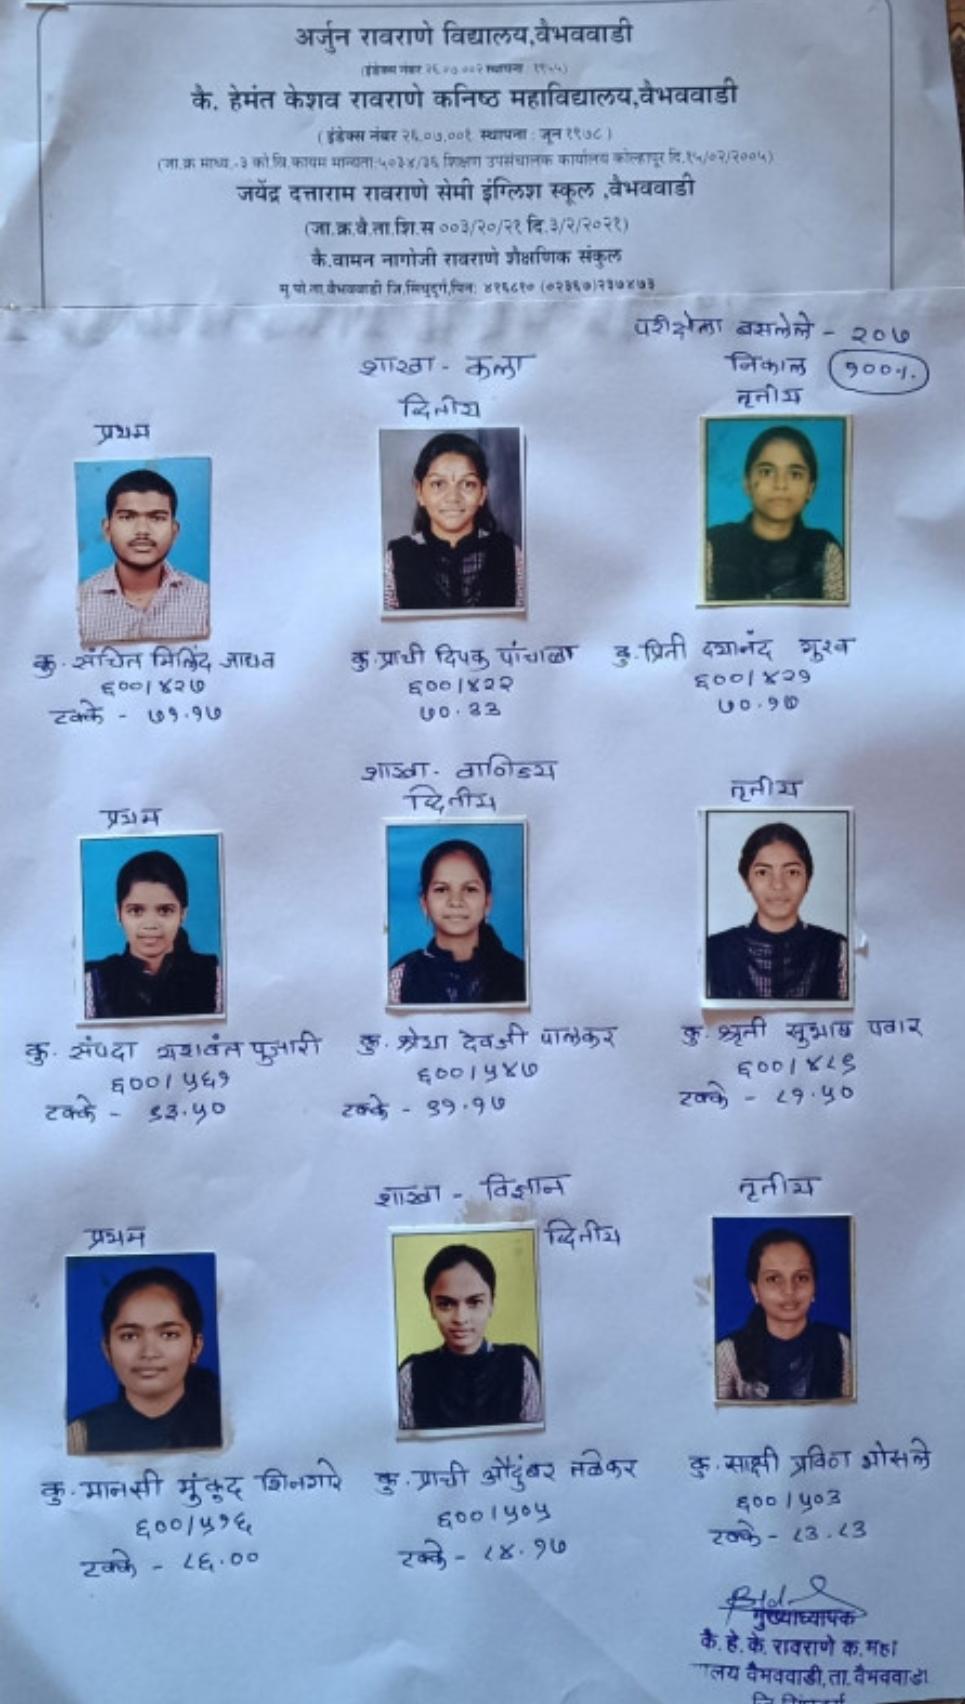 अर्जुन रावराणे विद्यालय,वैभववाडी
(इंडेक्स नंबर २६.०७.००२ स्थापना : १९५५)
कै. हेमंत केशव रावराणे कनिष्ठ महाविद्यालय,वैभववाडी
(इंडेक्स नंबर २६.०७.००१ स्थापना : जून १९७८)
(जा.क्र माध्य.-३ को.वि.कायम मान्यता:५०३४/३६ शिक्षण उपसंचालक कार्यालय कोल्हापूर दि.१५/०२/२००५)
जयेंद्र दत्ताराम रावराणे सेमी इंग्लिश स्कूल ,वैभववाडी
(जा.क्र.वै.ता.शि.स ००३/२०/२१ दि.३/२/२०२१)
कै.वामन नागोजी रावराणे शैक्षणिक संकुल
मु.पो.ता.वैभववाडी जि.सिंधुदुर्ग,पिन: ४१६८१० (०२३६७)२३७४७३
परीक्षेला बसलेले - २०७
शाखा - कला
निकाल १००%
प्रथम द्वितीय तृतीय
कु. संचित मिलिंद जाधव कु. प्राची दिपक पांचाळ कु. प्रिती दयानंद गुरव
६००/४२७ ६००/४२२ ६००/४२१
टक्के - ७१.१७ ७०.३३ ७०.१७
शाखा - वाणिज्य
प्रथम द्वितीय तृतीय
कु. संपदा यशवंत पुजारी कु. श्रेया देवजी पालकर कु. श्रृती सुभाष पवार
६००/५६१ ६००/५४७ ६००/४८९
टक्के - ९३.५० टक्के - ९१.१७ टक्के - ८१.५०
शाखा - विज्ञान
प्रथम द्वितीय तृतीय
कु. मानसी मुंकुद शिनगारे कु. प्राची औदुंबर नळेकर कु. साक्षी प्रविण भोसले
६००/५१६ ६००/५०५ ६००/५०३
टक्के - ८६.०० टक्के - ८४.१७ टक्के - ८३.८३
मुख्याध्यापक
कै. हे. के. रावराणे क. महा
लय वैभववाडी, ता. वैभववाडी